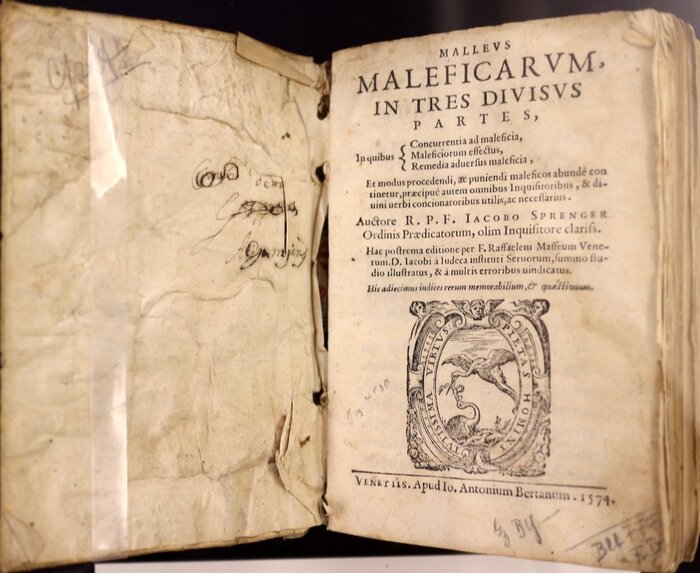 MALLEVS
MALEFICARVM,
IN TRES DIVISVS
PARTES,
In quibus { Concurrentia ad maleficia,
Maleficiorum effectus,
Remedia aduersus maleficia,
Et modus procedendi, ac puniendi maleficos abundè con
tinetur, præcipuè autem omnibus Inquisitoribus, & di-
uini uerbi concionatoribus utilis, ac necessarius.
Auctore R. P. F. IACOBO SPRENGER
Ordinis Prædicatorum, olim Inquisitore clariss.
Hac postrema editione per F. Raffaelem Maffeum Vene-
tum. D. Iacobi à Iudeca instituti Seruorum, summo stu-
dio illustratus, & à multis erroribus uindicatus.
His adiecimus indices rerum memorabilium, & quæstionum.
PIETAS HOMINI
TVTISSIMA VIRTVS
VENETIIS. Apud Io. Antonium Bertanum. 1574.